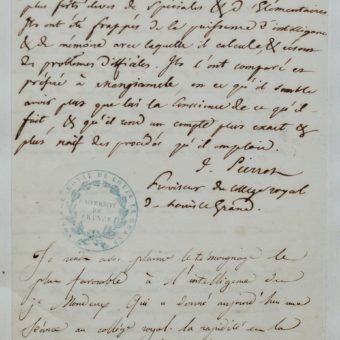 plus forts élèves de spéciales & d'élémentaires
Ils ont été frappés de la puissance d'intelligence
& de mémoire avec laquelle il calcule & résout
des problèmes difficiles. Ils l'ont comparé et
préféré à Mangiamele en ce qu'il semble
avoir plus que lui la conscience de ce qu'il
fait & qu'il rend un compte plus exact &
plus naïf des procédés qu'il emploie.
J. Pierrot
Proviseur du collège royal
de Louis le Grand.
ROYAL DE LOUIS LE GRAND
UNIVERSITÉ
DE
FRANCE
Je rends avec plaisir le témoignage le
plus favorable à l'intelligence du
je Mondeux qui a donné aujourd'hui une
séance au collège royal. la rapidité et la